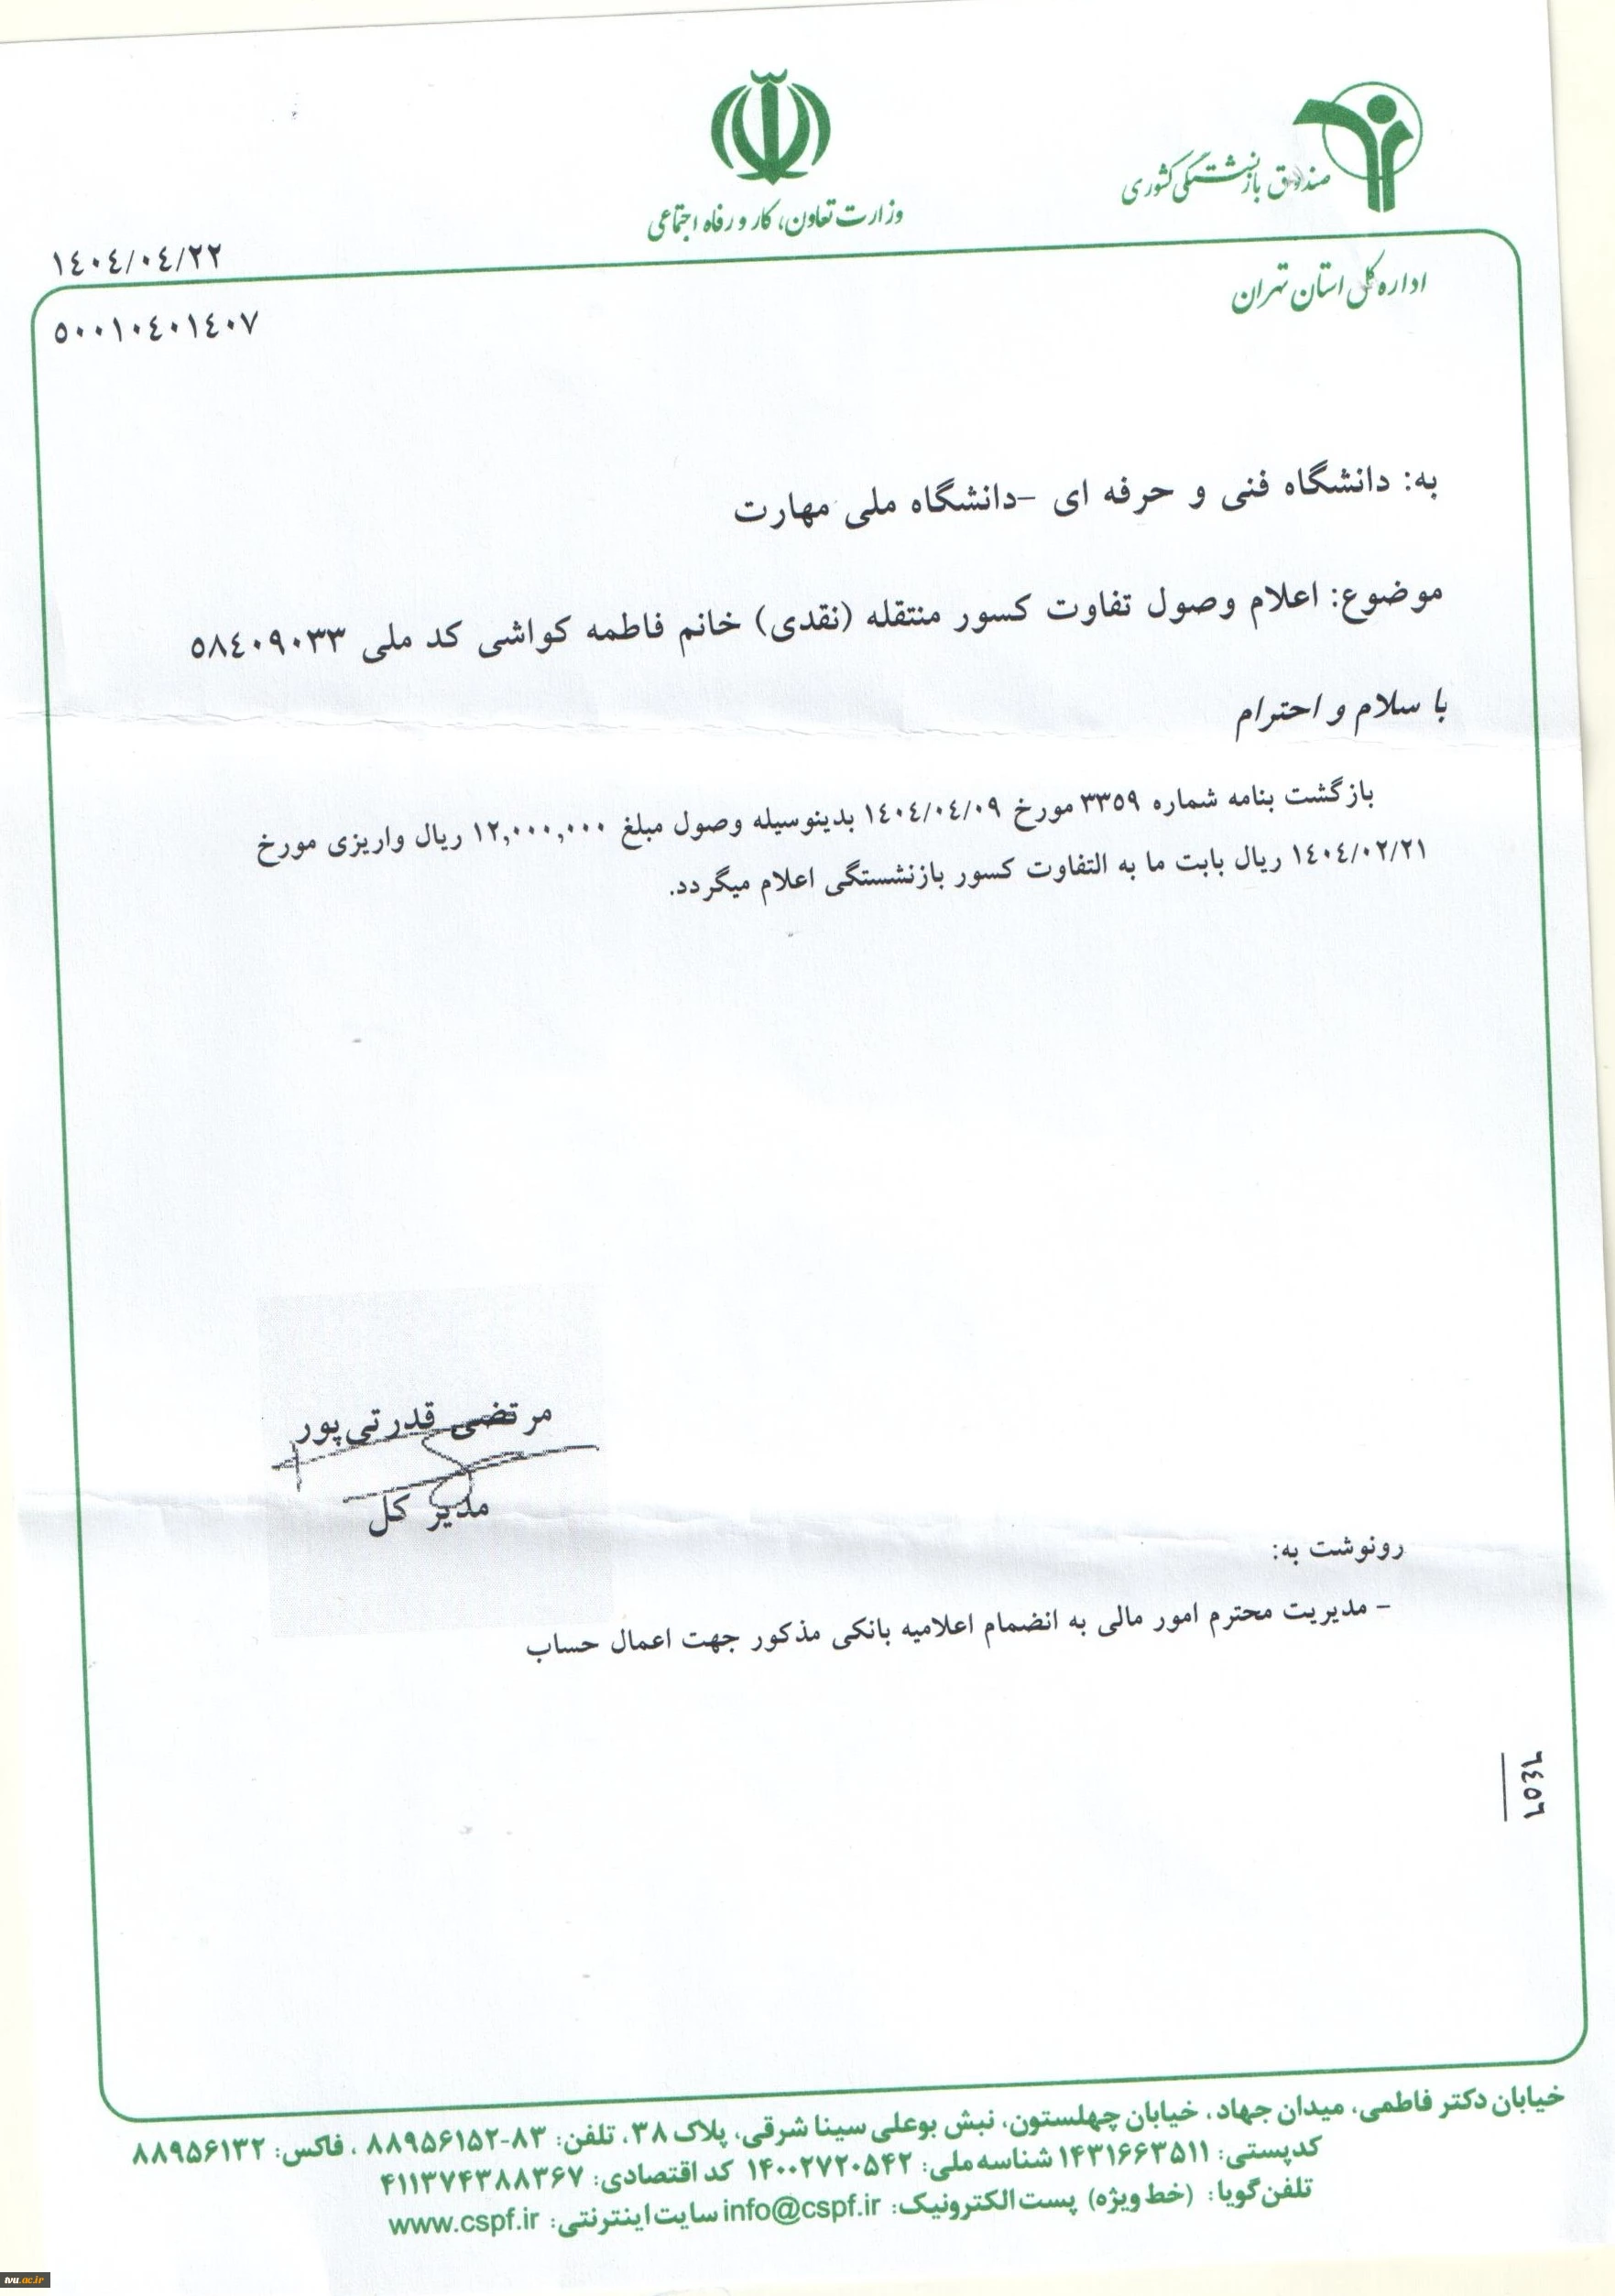 صندوق بازنشستگی کشوری
وزارت تعاون، کار و رفاه اجتماعی
اداره کل استان تهران
١٤٠٤/٠٤/٢٢
٥٠٠١٠٤٠١٤٠٧
به: دانشگاه فنی و حرفه ای -دانشگاه ملی مهارت
موضوع: اعلام وصول تفاوت کسور منتقله (نقدی) خانم فاطمه کواشی کد ملی ٥٨٤٠٩٠٣٣
با سلام و احترام
بازگشت بنامه شماره ٣٣٥٩ مورخ ١٤٠٤/٠٤/٠٩ بدینوسیله وصول مبلغ ١٢,٠٠٠,٠٠٠ ریال واریزی مورخ
١٤٠٤/٠٢/٢١ ریال بابت ما به التفاوت کسور بازنشستگی اعلام میگردد.
مرتضی قدرتی‌پور
مدیر کل
رونوشت به:
- مدیریت محترم امور مالی به انضمام اعلامیه بانکی مذکور جهت اعمال حساب
٦٤٥٦
خیابان دکتر فاطمی، میدان جهاد، خیابان چهلستون، نبش بوعلی سینا شرقی، پلاک ۳۸، تلفن: ۸۳-۸۸۹۵۶۱۵۲ ، فاکس: ۸۸۹۵۶۱۳۲
کدپستی: ۱۴۳۱۶۶۳۵۱۱ شناسه ملی: ۱۴۰۰۲۷۲۰۵۴۲ کد اقتصادی: ۴۱۱۳۷۴۳۸۸۳۶۷
تلفن گویا: (خط ویژه) پست الکترونیک: info@cspf.ir سایت اینترنتی: www.cspf.ir
tvu.ac.ir